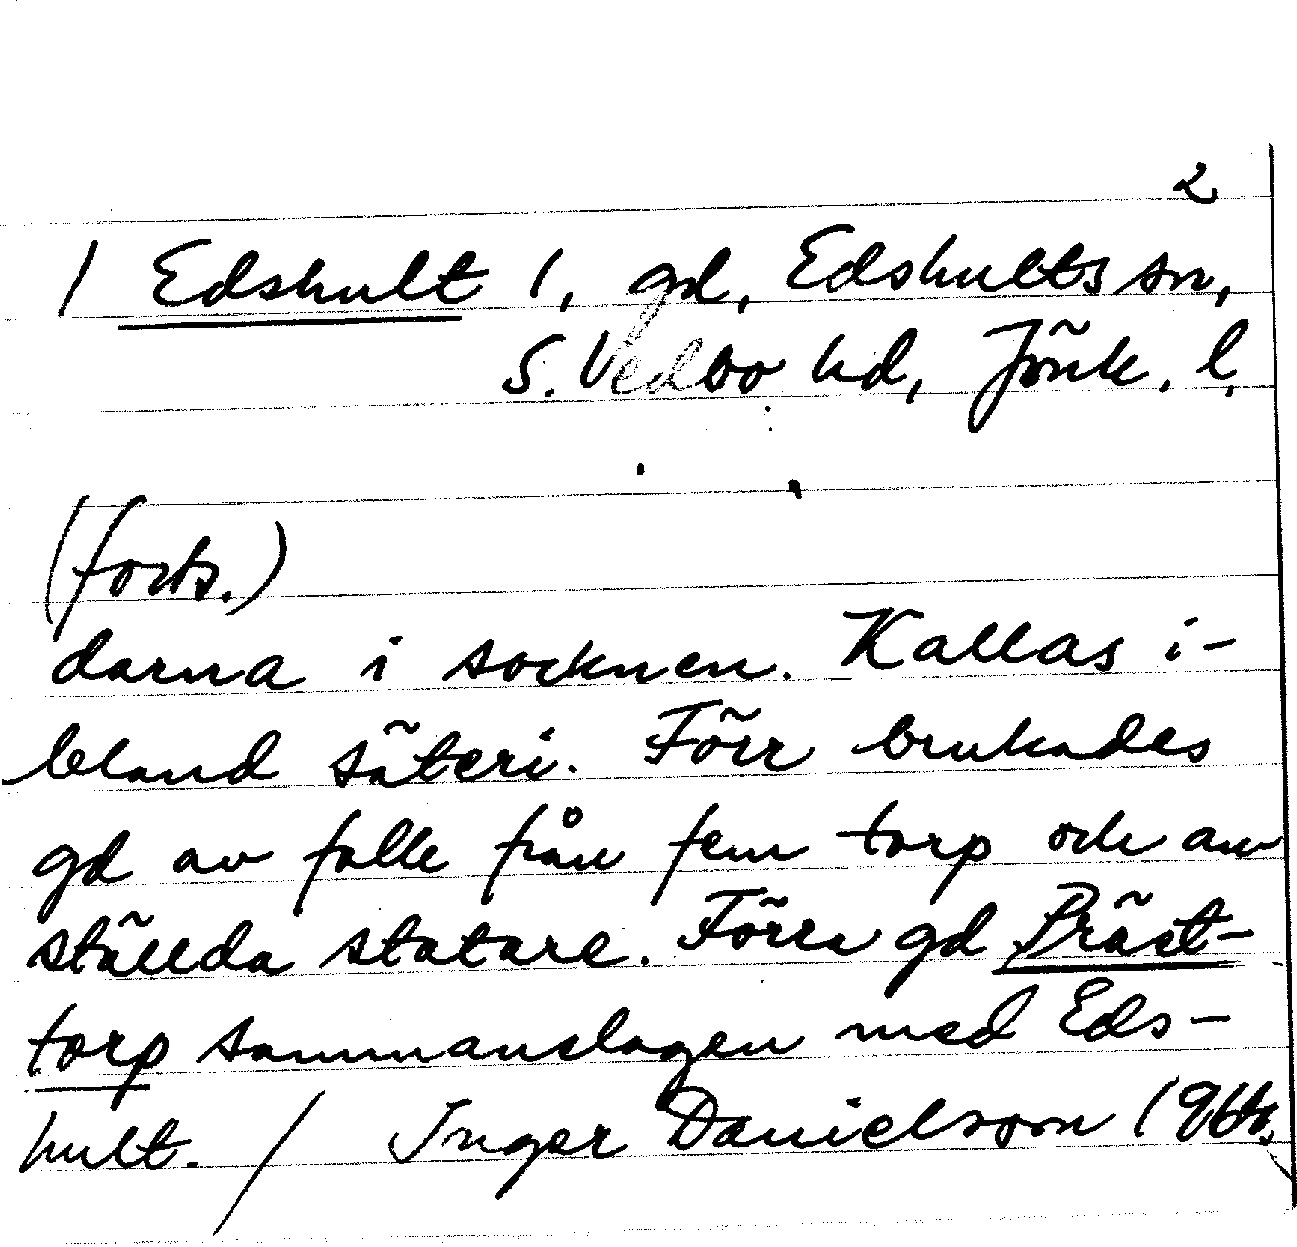 2
/ Edshult 1, gd, Edshults sn,
S. Vedbo hd, Jönk. l.
(forts.)
darna i socknen. Kallas i-
bland säteri. Förr brukades
gd av folk från fem torp och an
ställda statare. Förra gd Präst-
torp sammanslagen med Eds-
hult. / Inger Danielsson